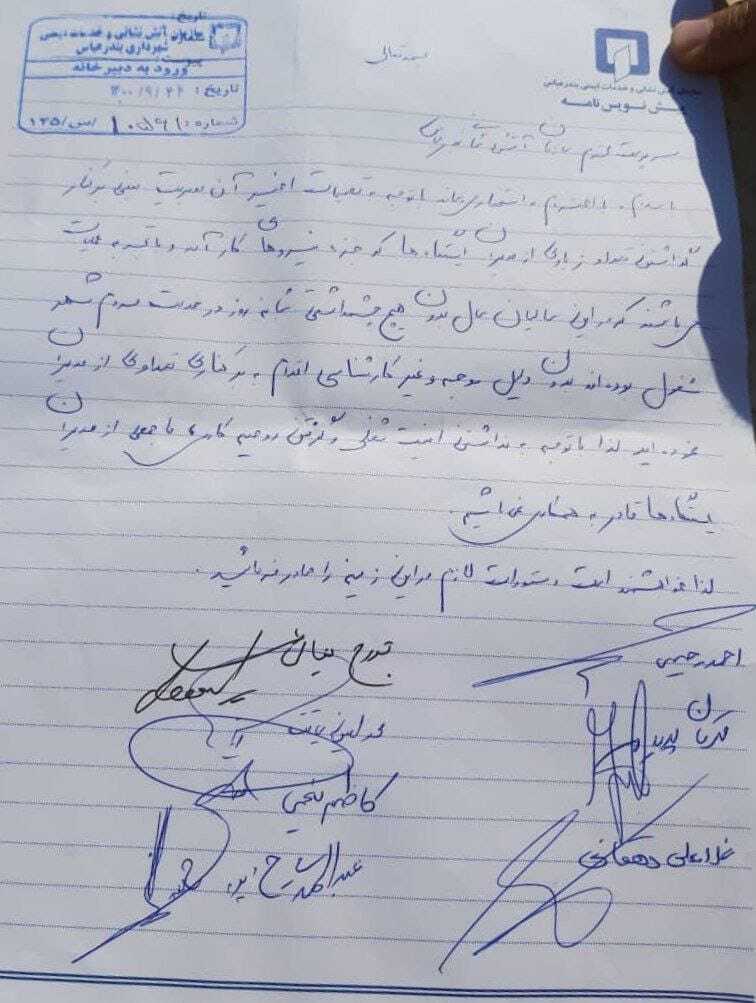 تاریخ:
سازمان آتش نشانی و خدمات ایمنی
شهرداری بندرعباس
ورود به دبیرخانه
تاریخ: ۱۴۰۰/۹/۲۲
شماره: ۱۰۵۶۱ /س/۱۲۵
بسمه تعالی
سازمان آتش نشانی و خدمات ایمنی بندرعباس
پیش نویس نامه
سرپرست محترم سازمان آتش نشانی بندرعباس
با سلام و احترام با توجه به تصمیمات اخیر آن مدیریت مبنی بر کنار
گذاشتن تعداد زیادی از مدیران ایستگاه ها که جزء نیروهای کارآمد و با تجربه عملیات
می باشند که در این سالیان سال بدون هیچ چشمداشتی شبانه روز در خدمت مردم شهر
مشغول بوده اند بدون دلیل موجه و غیر کارشناسی اقدام به برکناری تعدادی از مدیران
نموده اید لذا با توجه به نداشتن امنیت شغلی و گرفتن روحیه کاری ما جمعی از مدیران
ایستگاه ها قادر به همکاری نمی باشیم.
لذا خواهشمند است دستورات لازم در این زمینه را صادر فرمائید.
احمد رحیمی
تورج
قربان
کاظم
غلامعلی دهقانی
عبدالحمید